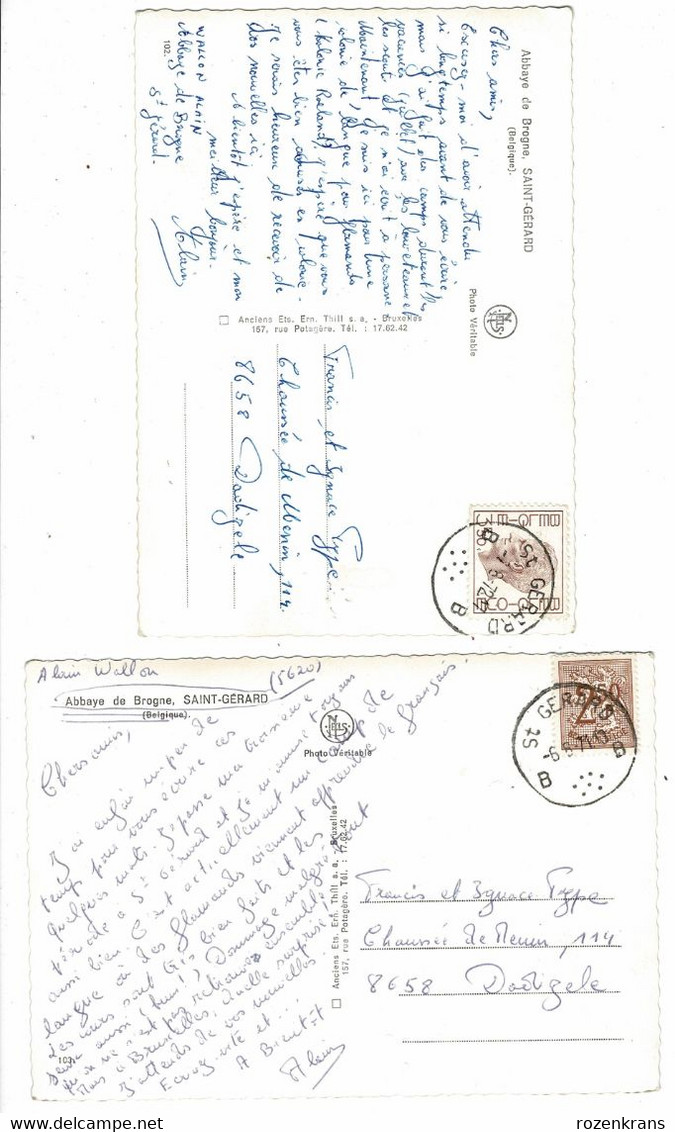 Abbaye de Brogne, SAINT-GÉRARD
(Belgique).
Chers amis,
Excusez-moi d'avoir attendu
si longtemps avant de vous écrire
mais j'ai fait des camps durant les
vacances (juillet) avec les louveteaux et
les scouts et je n'ai écrit à personne
Maintenant, je suis ici pour une
colonie de langue pour flamands
J'espère que vous
vous êtes bien amusés en colonie.
Je serais heureux de recevoir de
vos nouvelles ici.
A bientôt j'espère et mon
meilleur bonjour.
Alain
WALLON ALAIN
Abbaye de Brogne
St Gérard.
102.
Photo Véritable
NELS
Anciens Ets. Ern. Thill s. a. - Bruxelles
157, rue Potagère. Tél. : 17.62.42
Francis et Ignace Type
Chaussée de Menin, 114
8658 Dadizele
BELGIE-BELGIQUE
3,50
St GERARD
B
Alain Wallon
(5620)
Abbaye de Brogne, SAINT-GÉRARD
(Belgique).
NELS
Photo Véritable
Chers amis,
J'ai enfin un peu de
temps pour vous écrire ces
quelques mots. Je passe ma troisième
période à St Gérard et je m'amuse toujours
aussi bien. C'est actuellement un camp de
langue où des flamands viennent apprendre le français.
Les cours sont très bien faits et les
aussi (hum!) Dommage
qu'on ne s'est pas retrouvés ensemble
à Bruxelles. Quelle surprise!
J'attends de vos nouvelles.
Ecrivez vite et...
A Bientôt
Alain
103.
Anciens Ets. Ern. Thill s. a. - Bruxelles
157, rue Potagère. Tél. : 17.62.42
St GERARD
B
-6.8.71
2,50
Francis et Ignace Type
Chaussée de Menin, 114
8658 Dadizele
rozenkrans